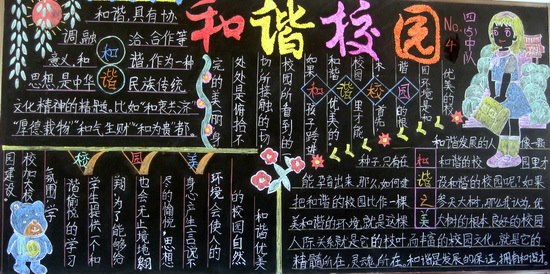 和谐校园
No.4
四(5)中队
和谐,具有协
调,融洽,合作等
意义,和谐,作为一种
思想,是中华民族传统
文化精神的精髓。比如"和衷共济"
"厚德载物""和气生财""和为贵"都
优美的校
园环境是和
谐校园的
校园里才能
如果孩子跨进
校园所看到的
所接触的一切
处处是
完的美丽
和谐校园
和谐优美
的校园自然
环境会使人的
身心产生言说不
尽的愉悦,思想
也会无止境翱
翔,为了能够给
学生提供一个和
谐愉悦的学习
氛围,学
校加大校
园建设。
校园美
和谐之美
和谐发展的人像一颗
种子,只有在和谐的校园里才
能孕育出来,那么,如何建设和谐的校园呢?如果
把和谐的校园比作一棵参天大树,那么我认为,优
美和谐的环境,就是这棵大树的根本,良好的校园
人际关系就是它的枝叶,而精普的校园文化,就是它的
精髓所在,灵魂所在,和谐是发展的保证,拥抱和谐才